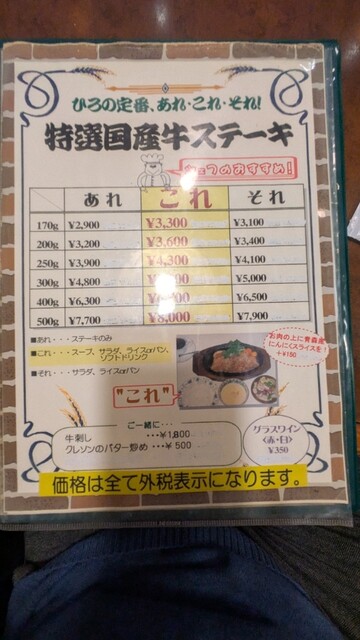 ひろの定番、あれ・これ・それ!
特選国産牛ステーキ
シェフのおすすめ!
あれ これ それ
170g ¥2,900 ¥3,300 ¥3,100
200g ¥3,200 ¥3,600 ¥3,400
250g ¥3,900 ¥4,300 ¥4,100
300g ¥4,800 ¥5,000
400g ¥6,300 ¥6,500
500g ¥7,700 ¥8,000 ¥7,900
■あれ・・・ステーキのみ
■これ・・・スープ、サラダ、ライスorパン、
ソフトドリンク
■それ・・・サラダ、ライスorパン
お肉の上に青森産
にんにくスライスを!
+¥150
"これ"
ご一緒に…
牛刺し ・・・¥1,800
クレソンのバター炒め ・・・¥ 500
グラスワイン
(赤・白)
¥350
価格は全て外税表示になります。